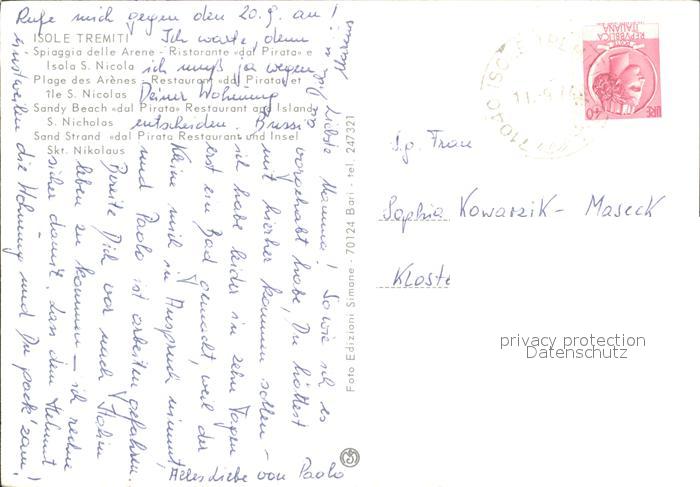 Rufe mich gegen den 20. 9. an!
Ich warte, denn
ich muß ja wegen
Deiner Wohnung
entscheiden. Bussi
ISOLE TREMITI
- Spiaggia delle Arene - Ristorante «dal Pirata» e
Isola S. Nicola
Plage des Arènes - Restaurant «dal Pirata» et
Ile S. Nicolas
Sandy Beach «dal Pirata» Restaurant and Island
S. Nicholas
Sand Strand «dal Pirata Restaurant und Insel
Skt. Nikolaus
Liebste Mamma! So wie ich es
vorgehabt habe, Du hättest
mit hierher kommen sollen -
ich habe leider in zehn Tagen
erst ein Bad gemacht, weil der
Kleine mich in Anspruch nimmt,
und Paolo ist arbeiten gefahren.
Bereite Dich vor nach Italien
leben zu kommen - ich rechne
sicher damit. Lass dem Helmut
einstweilen die Wohnung und Du pack' zam!
Alles Liebe von Paolo
Foto Edizioni Simone - 70124 Bari - tel. 247321
REPVBBLICA
ITALIANA
LIRE 40
71040 ISOLE TREMITI
S.g. Frau
Sophia Kowarzik - Maseck
Kloste
privacy protection
Datenschutz